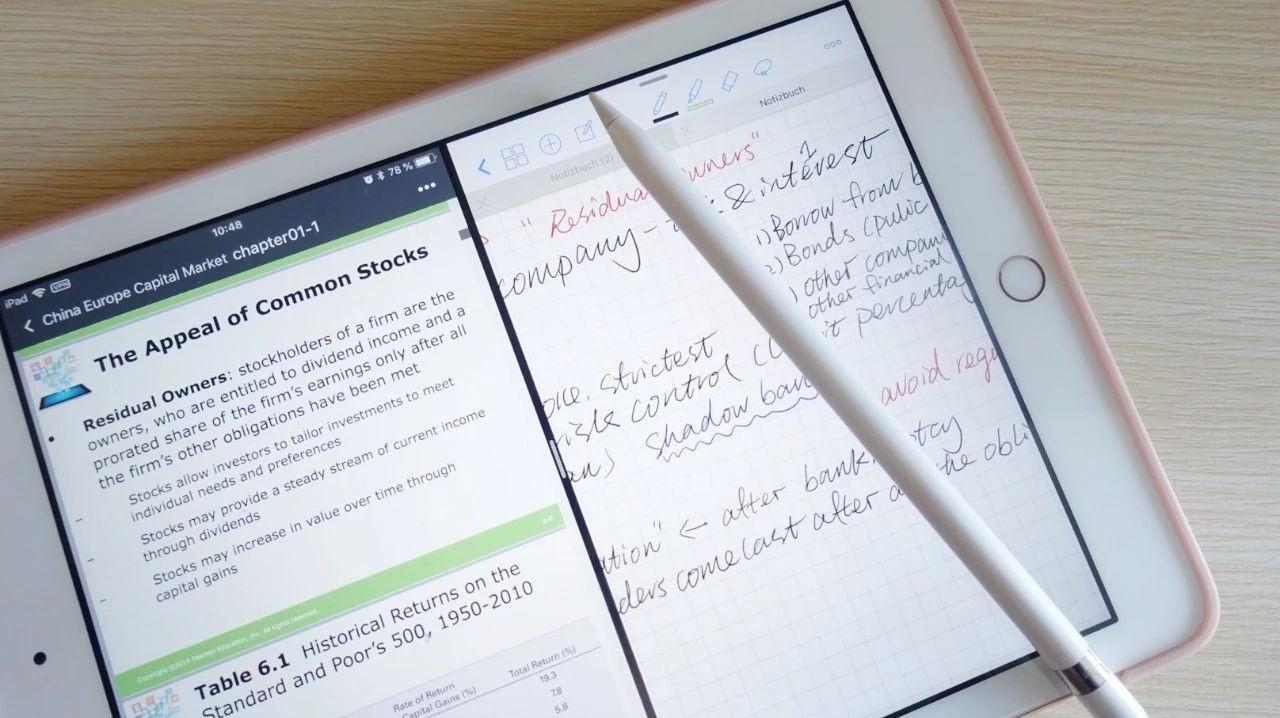 iPad VPN
10:48
78 %
China Europe Capital Market chapter01-1
The Appeal of Common Stocks
Residual Owners: stockholders of a firm are the
owners, who are entitled to dividend income and a
prorated share of the firm's earnings only after all
the firm's other obligations have been met
Stocks allow investors to tailor investments to meet
individual needs and preferences
Stocks may provide a steady stream of current income
through dividends
Stocks may increase in value over time through
capital gains
Copyright ©2014 Pearson Education, Inc. All rights reserved.
Table 6.1 Historical Returns on the
Standard and Poor's 500, 1950-2010
Rate of Return
Capital Gains (%)
Total Return (%)
19.3
7.8
5.8
Notizbuch (2)
Notizbuch
" Residua wners"
company - & interest
1) Borrow from b
2) Bonds (pulic
) other compan
other financial
it percentag
strictest
risk control
shadow ban avoid regu
ation" ← after bank tcy
ders come last after a he obli